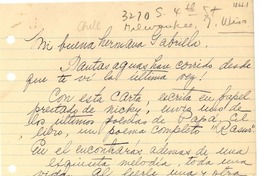 Chile
3270 S. 4th St
Milwaukee, 7, Wisc
Mi buena hermana Gabriela:
¡Cuántas aguas han corrido desde
que te vi la última vez!
Con esta carta, escrita en papel
prestado de Nicky, envío uno de
los últimos poesías de Papá, El
libro, un poema completo "Casus"
En él encontrarás además de una
exquisita melodía, toda una
vida. Al leerla una y otra